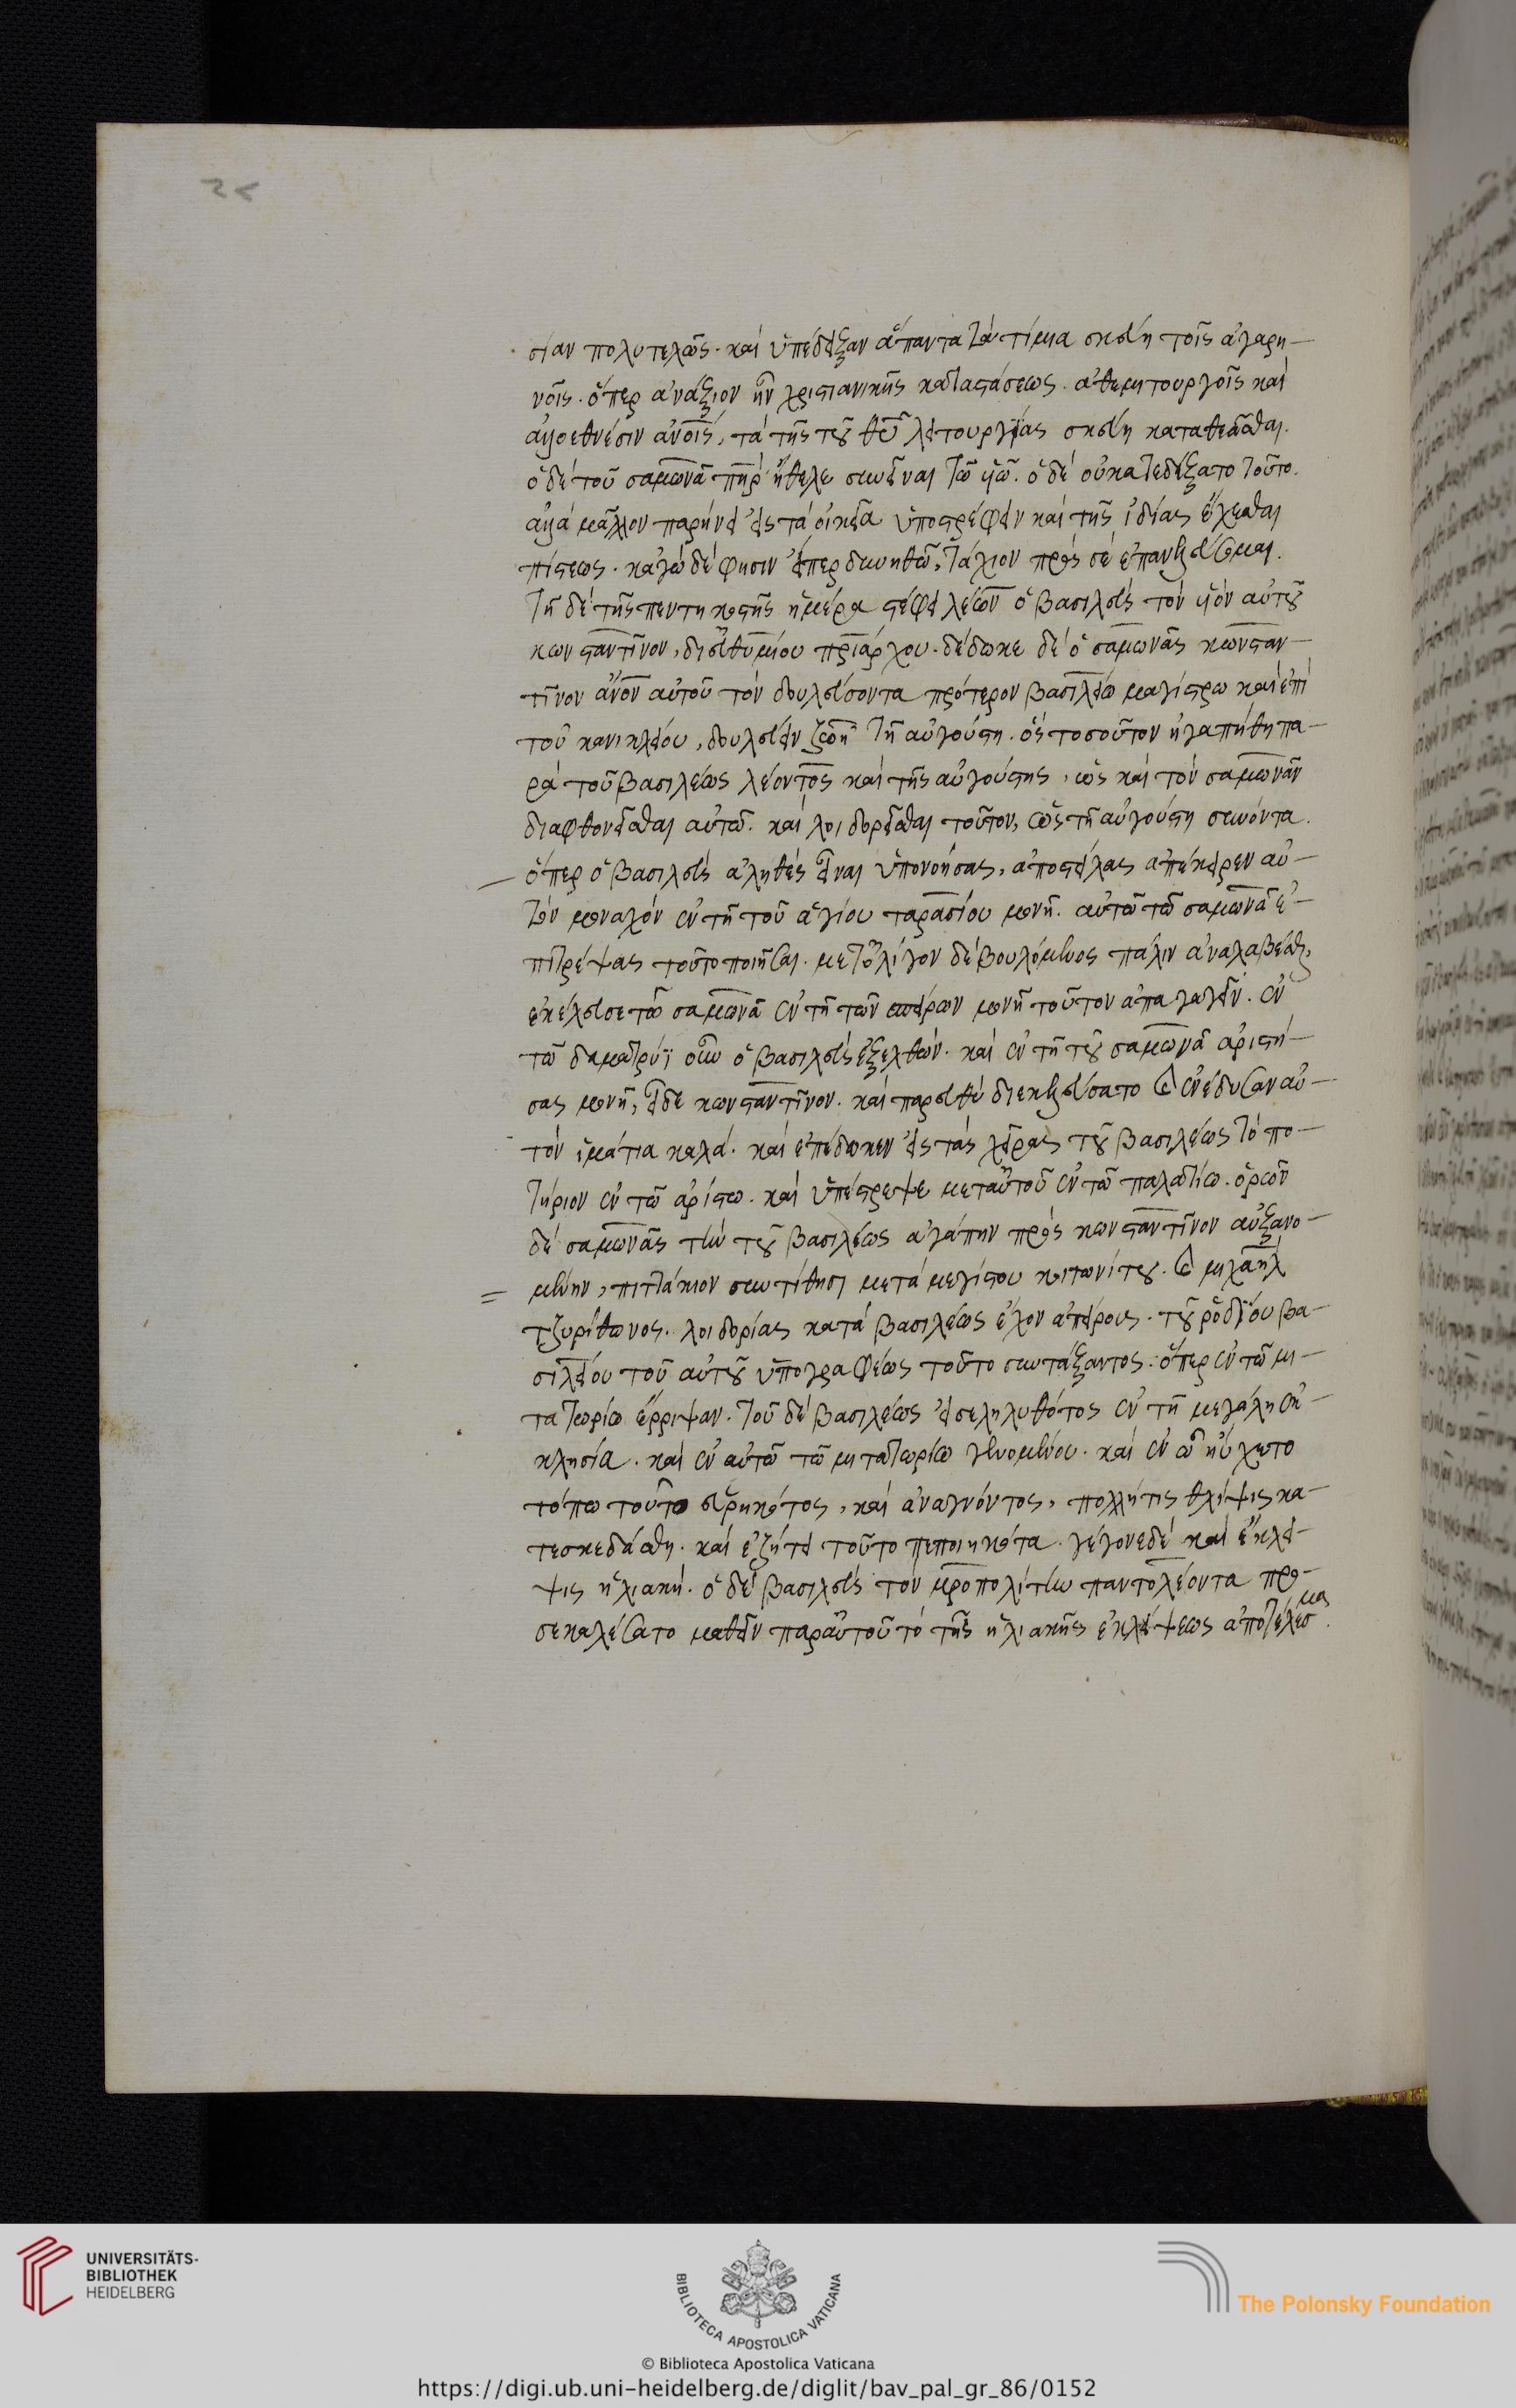 σίαν πολυτελῶς. καὶ ὑπέδειξαν ἅπαντα τὰ τίμια σκεύη τοῖς ἀγαρη-
νοῖς. ὅπερ ἀνάξιον ἦν χριστιανικῆς καταστάσεως. ἀθεμιτουργοῖς καὶ
ἀλλοεθνέσιν ἀν̅ο̅ι̅ς, τὰ τῆς τοῦ θ̅υ̅ λειτουργίας σκεύη καταθεᾶσθαι.
ὁ δὲ τοῦ σαμωνᾶ π̅η̅ρ̅ ἤθελε συνεῖναι τῷ υ̅ῶ̅. ὁ δὲ οὐ κατεδέξατο τοῦτο.
ἀλλὰ μᾶλλον παρήνει εἰς τὰ οἰκεῖα ὑποστρέφειν καὶ τῆς ἰδίας ἔχεσθαι
πίστεως. κἀγὼ δέ φησιν εἴπερ δυνηθῶ, τάχιον πρὸς σὲ ἐπανελεύσομαι.
τῇ δὲ τῆς πεντηκοστῆς ἡμέρα στέφει λέων ὁ βασιλεὺς τὸν υ̅ὸ̅ν αὐτοῦ
κωνσταντῖνον, δι' εὐθυμίου π̅ρ̅ιάρχου. δέδωκε δὲ ὁ σαμωνᾶς κωνσταν-
τῖνον ἄ̅ν̅ο̅ν αὐτοῦ τὸν δουλεύσοντα πρότερον βασιλείω μαγίστρω καὶ ἐπὶ
τοῦ κανικλείου, δουλεύειν ζωῆ τῆ αὐγούστη. ὃς τοσοῦτον ἠγαπήθη πα-
ρὰ τοῦ βασιλέως λέοντος καὶ τῆς αὐγούστης, ὡς καὶ τὸν σαμωνᾶν
διαφθονεῖσθαι αὐτῶ. καὶ λοιδορεῖσθαι τοῦτον, ὡς τῆ αὐγούστη συνόντα.
ὅπερ ὁ βασιλεὺς ἀληθὲς εἶναι ὑπονοήσας, ἀποστείλας ἀπέκειρεν αὐ-
τὸν μοναχὸν ἐν τῆ τοῦ ἁγίου ταρασίου μονῆ. αὐτῶ τῶ σαμωνᾶ ἐ-
πιτρέψας τοῦτο ποιῆσαι. μετ' ὀλίγον δὲ βουλόμενος πάλιν ἀναλαβέσθαι,
ἐκέλευσε τῶ σαμωνᾶ ἐν τῆ τῶν σπειρῶν μονῆ τοῦτον ἀπαγαγεῖν. ἐν
τῶ δαματρύϊ οὖν ὁ βασιλεὺς ἐξελθών. καὶ ἐν τῆ τοῦ σαμωνᾶ ἀριστή-
σας μονῆ, εἶδε κωνσταντῖνον. καὶ παρευθὺ διεκελεύσατο καὶ ἐνέδυσαν αὐ-
τὸν ἱμάτια καλά. καὶ ἐπέδωκεν εἰς τὰς χεῖρας τοῦ βασιλέως τὸ πο-
τήριον ἐν τῶ ἀρίστω. καὶ ὑπέστρεψε μετ' αὐτοῦ ἐν τῶ παλατίω. ὁρῶν
δὲ σαμωνᾶς τὴν τοῦ βασιλέως ἀγάπην πρὸς κωνσταντῖνον αὐξανο-
μένην, πιττάκιον συντίθησι μετὰ μεγίστου κοιτωνίτου. καὶ μιχαὴλ
τζυρίθωνος. λοιδορίας κατὰ βασιλέως ἔχον ἀπείρους. τοῦ ῥοδίου βα-
σιλείου τοῦ αὐτοῦ ὑπογραφέως τοῦτο συντάξαντος. ὅπερ ἐν τῶ μι-
τατωρίω ἔρριψαν. τοῦ δὲ βασιλέως εἰσεληλυθότος ἐν τῆ μεγάλη ἐκ-
κλησία. καὶ ἐν αὐτῶ τῶ μιτατωρίω γενομένου. καὶ ἐν ὧ ηὔχετο
τόπω τοῦτο εὑρηκότος, καὶ ἀναγνόντος, πολλή τις θλίψις κα-
τεσκεδάσθη. καὶ ἐζήτει τοῦτο πεποιηκότα. γέγονε δὲ καὶ ἔκλει-
ψις ἡλιακή. ὁ δὲ βασιλεὺς τὸν μ̅ρ̅οπολίτην πανταλέοντα προ-
σεκαλέσατο μαθεῖν παρ' αὐτοῦ τὸ τῆς ἡλιακῆς ἐκλείψεως ἀποτέλεσμα.
UNIVERSITÄTS-
BIBLIOTHEK
HEIDELBERG
BIBLIOTECA APOSTOLICA VATICANA
The Polonsky Foundation
© Biblioteca Apostolica Vaticana
https://digi.ub.uni-heidelberg.de/diglit/bav_pal_gr_86/0152